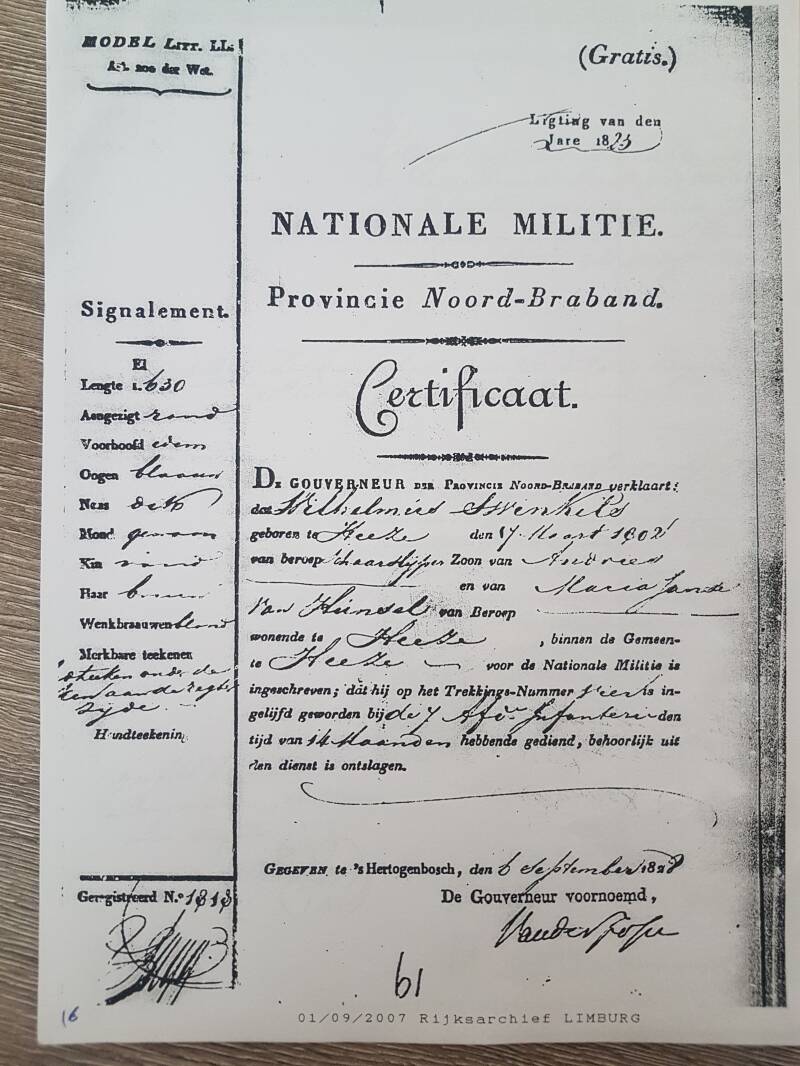 MODEL LITT. LL.
Art. 200 der Wet.
(Gratis.)
Ligting van den
Jare 1823
NATIONALE MILITIE.
Provincie Noord-Braband.
Signalement.
El
Lengte 1.630
Aangezigt rond
Voorhoofd idem
Oogen blaauw
Neus dik
Mond gewoon
Kin rond
Haar bruin
Wenkbraauwen blond
Merkbare teekenen
onder de
kin aan de regter
zijde
Handteekening
Certificaat.
DE GOUVERNEUR DER PROVINCIE NOORD-BRABAND verklaart:
dat Wilhelmus Swinkels
geboren te Heeze den 17 Maart 1802
van beroep Schaarslijper Zoon van Andries
en van Maria
Van van Beroep
wonende te Heeze , binnen de Gemeen-
te Heeze voor de Nationale Militie is
ingeschreven; dat hij op het Trekkings-Nummer vier is in-
gelijfd geworden bij de 7 Afd. Infanterie den
tijd van 14 Maanden hebbende gediend, behoorlijk uit
den dienst is ontslagen.
GEGEVEN te 's Hertogenbosch, den 6 September 1828
De Gouverneur voornoemd,
Geregistreerd N.° 1818
61
16
01/09/2007 Rijksarchief LIMBURG